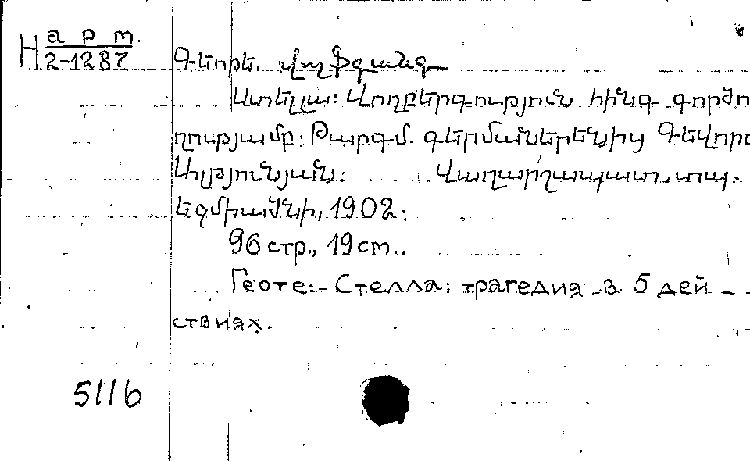 H а р т.
2-1287
Գեոթե. Վոլֆգանգ
Ստելլա: Վողբերգություն հինգ գործո
ղությամբ: Թարգմ. գերմաներենից Գեվորգ
Ալթունյան: Վաղարշապատ. տպ.
Եզմիածնի, 1902:
96 стр., 19 см..
Геоте:- Стелла: трагедия в 5 дей -
ствиях.
5116